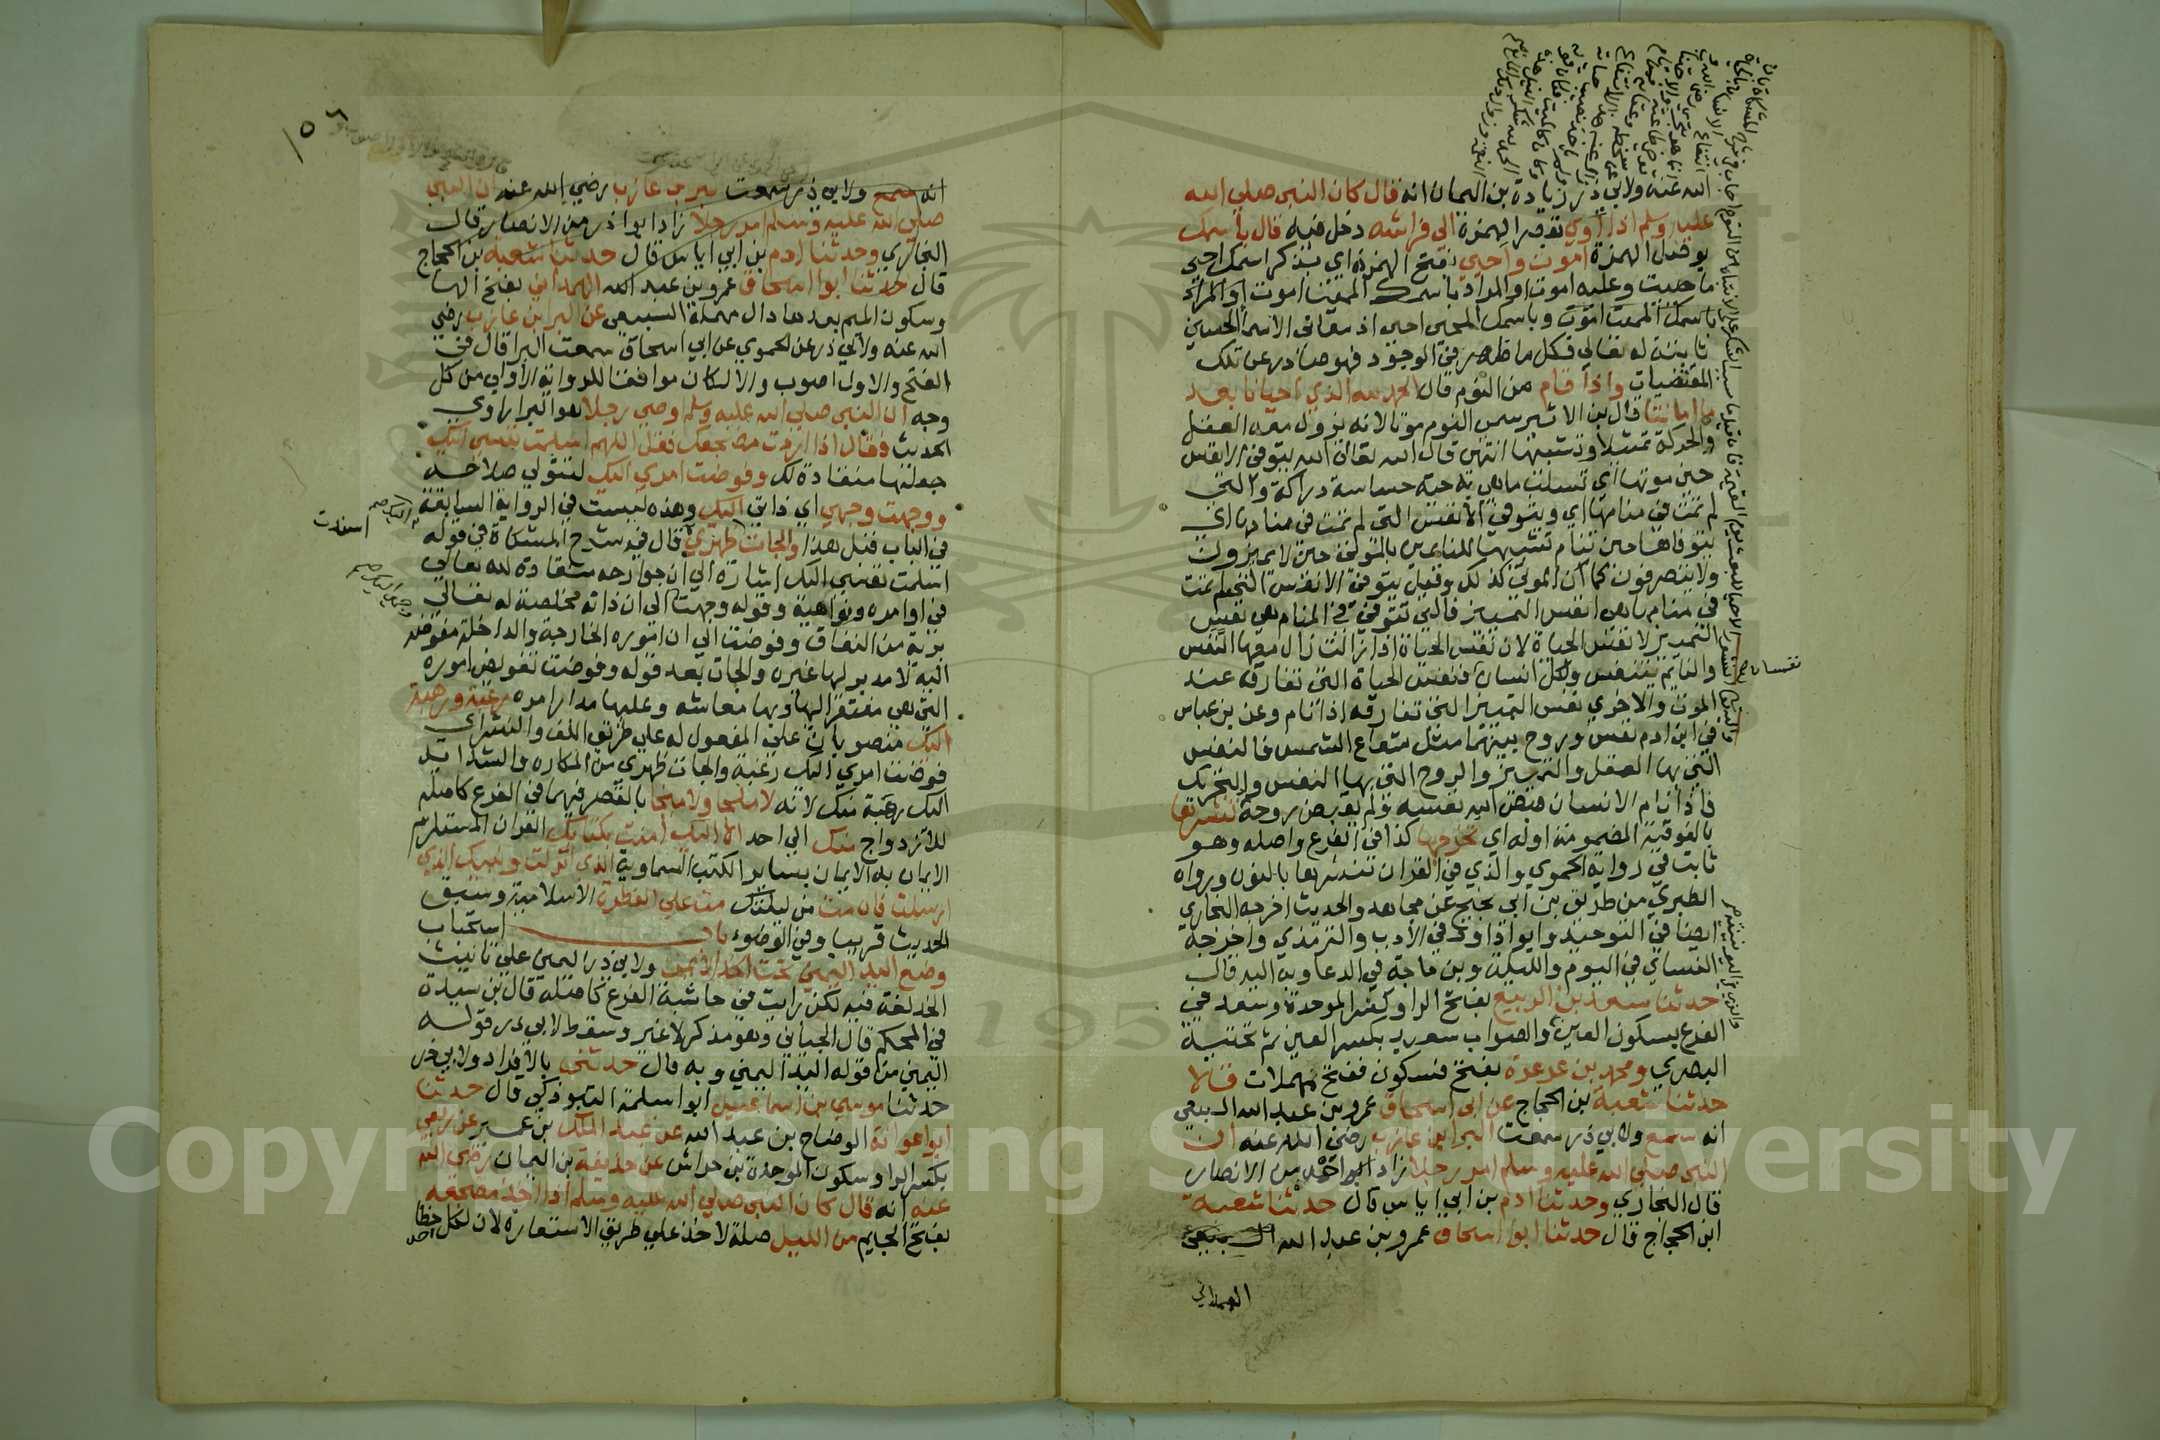 الله عنه ولابي ذر زيادة بن اليمان انه قال كان النبي صلي الله
عليه وسلم اذا اوي بقصر الهمزة الي فراشه دخل فيه قال باسمك
بوصل الهمزة اموت واحيي بفتح الهمزة اي بذكر اسمك احيي
ما حييت وعليه اموت او المراد باسمك المميت اموت او المراد
باسمك المميت اموت وباسمك المحيي احيي اذ معاني الاسما الحسني
ثابتة له تعالي فكل ما ظهر في الوجود فهو صادر عن تلك
المقتضيات واذا قام من النوم قال الحمد لله الذي احيانا بعد
ما اماتنا قال بن الاثير سمي النوم موتا لانه يزول معه العقل
والحركة تمثيلا وتشبيها انتهي قال الله تعالي الله يتوفي الانفس
حين موتها اي تسلب ما هي به حية حساسة دراكة والتي
لم تمت في منامها اي ويتوفي الانفس التي لم تمت في منامها اي
يتوفاها حين تنام تشبيها للنايمين بالمتوفي حين لا يميزون
ولا يتصرفون كما ان الموتي كذلك وقيل يتوفي الانفس التي لم تمت
في منامها هي انفس التمييز فالتي تتوفي في المنام هي نفس
التمييز لا نفس الحياة لان نفس الحياة اذا زالت زال معها النفس
والنايم يتنفس ولكل انسان نفس الحياة التي تفارقه عند
الموت والاخري نفس التمييز التي تفارقه اذا نام وعن بن عباس
في ابن ادم نفس وروح بينهما مثل شعاع الشمس فالنفس
التي بها العقل والتمييز والروح التي بها النفس والتحريك
فاذا نام الانسان قبض الله نفسه ولم يقبض روحه تنشرها
بالفوقية المضمومة اوله اي تخرجها كذا في الفرع واصله وهو
ثابت في رواية الحموي والذي في القران ننشرها بالنون ورواه
الطبري من طريق بن ابي نجيح عن مجاهد والحديث اخرجه البخاري
ايضا في التوحيد وابو داود في الادب والترمذي واخرجه
النساي في اليوم والليلة وبن ماجة في الدعا وبه اليه قال
حدثنا سعيد بن الربيع بفتح الرا وكسر الموحدة وسعد في
الفرع بسكون العين والصواب سعيد بكسر العين ثم تحتية
البصري ومحمد بن عرعرة بفتح فسكون ففتح مهملات قالا
حدثنا شعبة بن الحجاج عن ابي اسحاق عمرو بن عبد الله السبيعي
انه سمع ولابي ذر سمعت البرا بن عازب رضي الله عنه ان
النبي صلي الله عليه وسلم امر رجلا زاد من الانصار
قال البخاري وحدثنا ادم بن ابي اياس قال حدثنا شعبة
ابن الحجاج قال حدثنا ابو اسحاق عمرو بن عبد الله السبيعي
الهمداني
١٥٢
انه سمع ولابي ذر سمعت بن عازب رضي الله عنه ان النبي
صلي الله عليه وسلم امر رجلا زاد ابو ذر من الانصار قال
البخاري وحدثنا ادم بن ابي اياس قال حدثنا شعبة بن الحجاج
قال حدثنا ابو اسحاق عمرو بن عبد الله الهمداني بفتح الها
وسكون الميم بعدها دال مهملة السبيعي عن البرا بن عازب رضي
الله عنه ولابي ذر عن الحموي عن ابي اسحاق سمعت البرا قال في
الفتح والاول اصوب والا لكان موافقا للرواية الاولي من كل
وجه ان النبي صلي الله عليه وسلم اوصي رجلا هو البرا راوي
الحديث فقال اذا اردت مضجعك فقل اللهم اسلمت نفسي اليك
جعلتها منقادة لك وفوضت امري اليك لتتولي صلاحه
ووجهت وجهي اي ذاتي اليك وهذه ليست في الرواية السابقة
في الباب قبل هذا والجات ظهري قال في شرح المشكاة في قوله
اسلمت نفسي اليك اشارة الي ان جوارحه منقادة لله تعالي
في اوامره ونواهيه وقوله وجهت الي ان ذاته مخلصة له تعالي
برية من النفاق وفوضت الي ان اموره الخارجة والداخلة مفوضة
اليه لا مدبر لها غيره والجات بعد قوله وفوضت تفويض اموره
التي هي مفتقر اليها وبها معاشه وعليها مدار امره رغبة ورهبة
اليك منصوبان علي المفعول له علي طريق اللف والنشر اي
فوضت امري اليك رغبة والجات ظهري من المكاره والشدايد
اليك رهبة منك لانه لا ملجا ولا منجا بالقصر فيهما في الفرع كاصله
للازدواج منك الي احد الا اليك امنت بكتابك القران المستلزم
الايمان به الايمان بساير الكتب السماوية الذي انزلت ونبيك الذي
ارسلت فان مت من ليلتك مت علي الفطرة الاسلامية وسبق
الحديث قريبا وفي الوضوء باب استحباب
وضع اليد اليمني تحت الخد الايمن ولابي ذر اليمني علي تانيث
الخد لغة فيه لكن رايت في حاشية الفرع كاصله قال بن سيدة
في المحكم قال اللحياني وهو مذكر لا غير وسقط لابي ذر قوله
اليمني من قوله اليد اليمني وبه قال حدثني بالافراد ولابي ذر
حدثنا موسي بن اسماعيل ابو سلمة التبوذكي قال حدثنا
ابو عوانة الوضاح بن عبد الله عن عبد الملك بن عمير عن ربعي
بكسر الرا وسكون الموحدة بن حراش عن حذيفة بن اليمان رضي الله
عنه انه قال كان النبي صلي الله عليه وسلم اذا اخذ مضجعه
بفتح الجيم من الليل صلة لاخذ علي طريق الاستعارة لان لكل احد حظا
اسندت
Copyright © King Saud University
1957